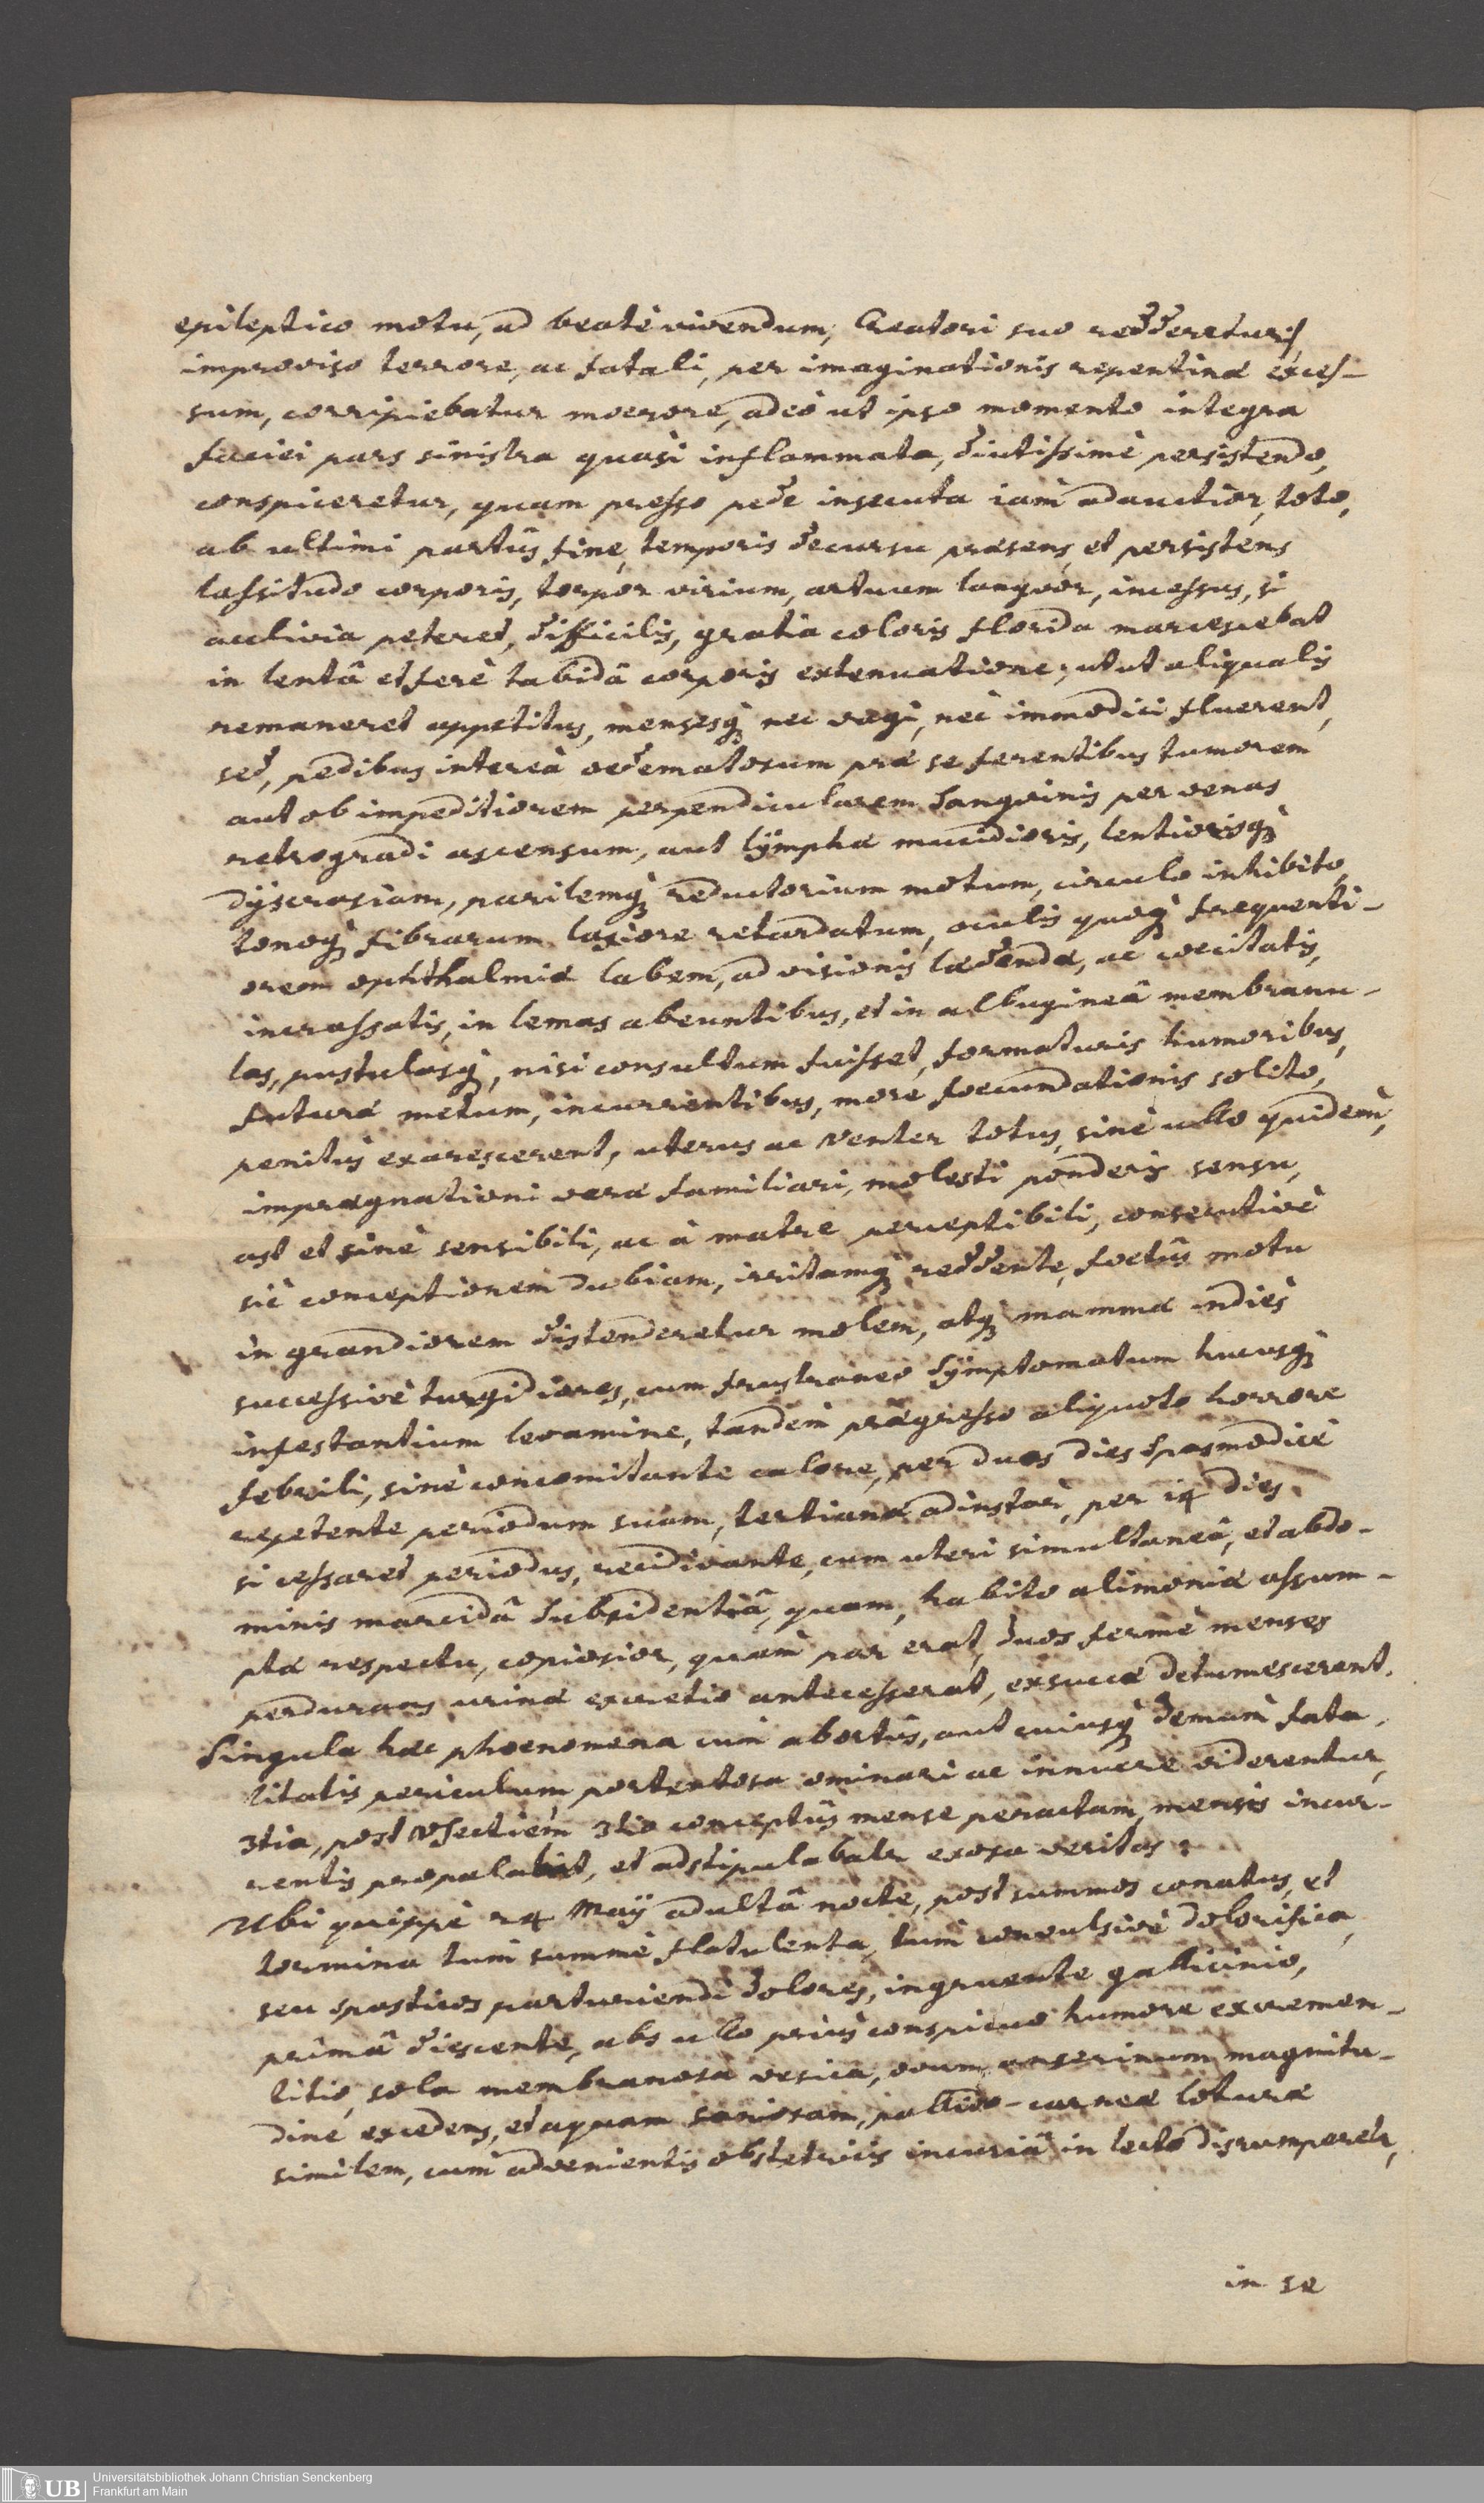 epileptico motu, ad beatè vivendum, Creatori suo redderetur,)
improviso terrore, ac fatali, per imaginationis repentinæ exces-
sum, corripiebatur moerore, adeò ut ipso momento integra
faciei pars sinistra quasi inflammata, diutissimè persistendo,
conspiceretur, quam presso pede insecuta iam adauctior, toto,
ab ultimi partûs fine, temporis decursu præsens, et persistens
lassitudo corporis, torpor virium, artuum langvor, incessus, si
acclivia peteret, difficilis, gratia coloris florida marcescebat
in lentâ et ferè tabidâ corporis extenuatione; utut aliqualis
remaneret appetitus, mensesq; nec vagi, nec immodici fluerent,
sed, pedibus intereà oedematosum præ se ferentibus tumorem
aut ob impeditiorem perpendicularem sangvinis per venas
retrogradi ascensum, aut lÿmphæ mucidioris, lentiorisq;
dÿscrasiam, parilemq; reductorium motum, circulo inhibito,
tonoq; fibrarum laxiore retardatum, oculis quoq; frequenti-
orem ophthalmiæ labem, ad visionis lædendæ, ac coecitatis,
incrassatis, in lemas abeuntibus, et in albugineâ membranu-
las, pustulasq;, nisi consultum fuisset, formaturis humoribus,
futuræ metum, incurrentibus, more foecundationis solito,
penitùs exarescerent, uterus ac Venter totus, sinè ullo quidem,
imprægnationi veræ familiari, molesti ponderis sensu,
ast et sinè sensibili, ac à matre perceptibili, consecutivè
sic conceptionem dubiam, irritamq; reddente, foetûs motu
in grandiorem distenderetur molem, atq; mammæ indiès
successivè turgidiores, cum frustraneo Sÿmptomatum hucusq;
infestantium levamine, tandem prægresso aliquoto horrore
febrili, sinè concomitante calore, per duos dies Spasmodicè
repetente periodum suam, tertianæ ad instar, per 14 dies
si cessaret periodus, recidivante, cum uteri simultaneâ, et abdo-
minis marcidâ Subsidentiâ, quam, habito alimoniæ assum-
ptæ respectu, copiosior, quam par erat, duos fermè menses
perdurans urinæ excretio antecesserat, exsuccæ detumescerent.
Singula hæc phoenomena cum abortûs, aut cuiusq; demum fata-
litatis periculum portentosa ominari ac innuere viderentur,
3tia, post Vsectiem 3tio conceptûs mense peractam, mensis incur-
rentis propalabat, et adstipulabatr exosa veritas.
Ubi quippè 24 Maÿ adultâ nocte, post summos conatus, et
tormina tum summè flatulenta, tum convulsivè dolorifica,
seu spasticos parturiendi dolores, ingruente gallicinio,
primâ diescente, abs ullo priùs conspicuo humore excremen-
titio, sola membranosa vesica, ovum anserinum magnitu-
dine excedens, et aquam saniosam, pallido-carneæ loturæ
similem, cum advenientis obstetricis incuriâ in lecto disrumperetr,
in se
Universitätsbibliothek Johann Christian Senckenberg
Frankfurt am Main
UB